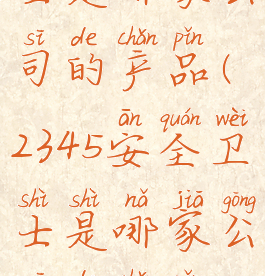 士是哪家公
sī de chǎn pǐn
司的产品(
ān quán wèi
2345安全卫
shì shì nǎ jiā gōng
士是哪家公